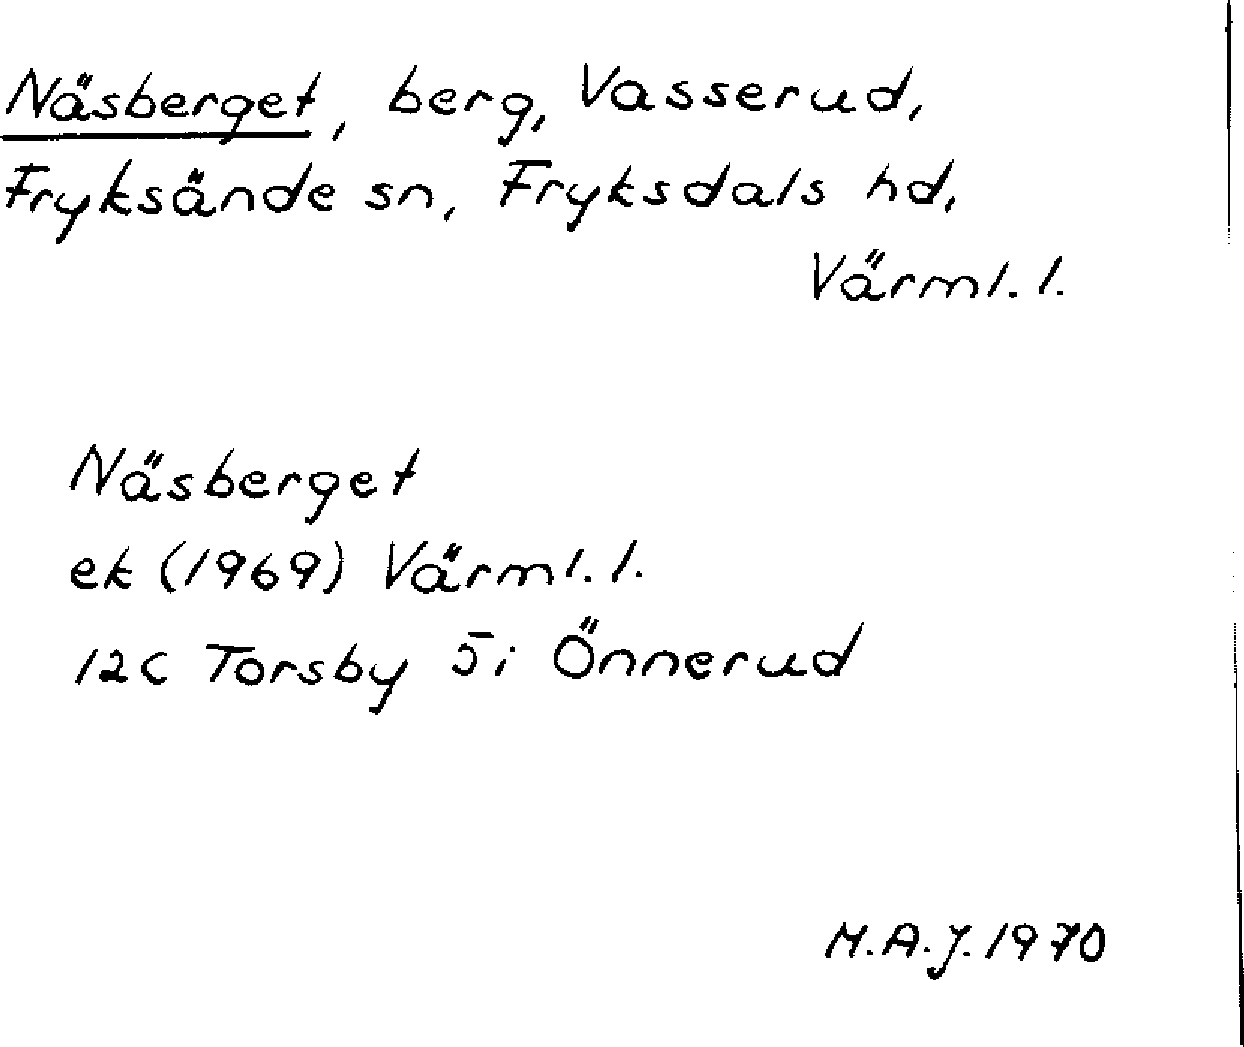 Näsberget, berg, Vasserud,
Fryksände sn, Fryksdals hd,
Värml. l.
Näsberget
ek (1969) Värml. l.
12C Torsby 5i Önnerud
M.A.J. 1970